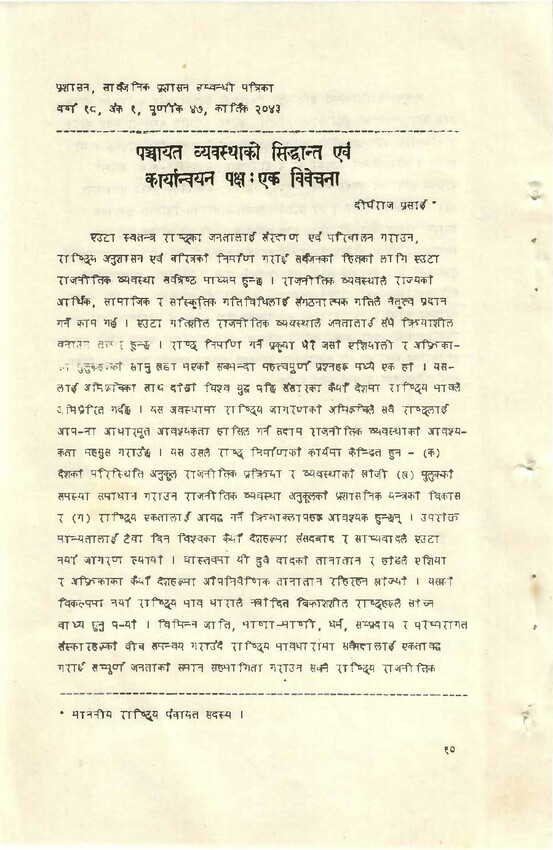 प्रशासन, सार्वजनिक प्रशासन सम्बन्धी पत्रिका
वर्ष १८, अंक १, पूर्णांक ४७, कार्तिक २०४३
पञ्चायत व्यवस्थाको सिद्धान्त एवं
कार्यान्वयन पक्ष : एक विवेचना
दीर्घराज प्रसाई *
एउटा स्वतन्त्र राष्ट्रका जनतालाई संरक्षण एवं परिचालन गराउन,
राष्ट्रिय अनुशासन एवं चरित्रको निर्माण गराई सर्वजनको हितको लागि एउटा
राजनीतिक व्यवस्था सर्वश्रेष्ठ माध्यम हुन्छ । राजनीतिक व्यवस्थाले राज्यको
आर्थिक, सामाजिक र सांस्कृतिक गतिविधिलाई संगठनात्मक गतिले नेतृत्व प्रदान
गर्ने काम गर्छ । एउटा गतिशील राजनीतिक व्यवस्थाले जनतालाई सधै क्रियाशील
बनाउन हुन्छ । राष्ट्र निर्माण गर्ने प्रकृया धेरै जसो एशियाली र अफ्रिका-
मुलुकहरुको सामु खडा भएको सबभन्दा महत्वपूर्ण प्रश्नहरु मध्ये एक हो । यस-
लाई अभिरुचिका साथ दोश्रो विश्व युद्ध पछि संसारका कैयौं देशमा राष्ट्रिय भावले
अभिप्रेरित गर्दछ । यस अवस्थामा राष्ट्रिय जागरणको अभिरुचिले सबै राष्ट्रलाई
आफ्ना आधारभूत आवश्यकता हासिल गर्न सक्षम राजनीतिक व्यवस्थाको आवश्य-
कता महसुस गराउँछ । यस उसले राष्ट्र निर्माणको कार्यमा केन्द्रित हुन - (क)
देशको परिस्थिति अनुकूल राजनीतिक प्रक्रिया र व्यवस्थाको खोजी (ख) मुलुकको
समस्या समाधान गराउन राजनीतिक व्यवस्था अनुकूलको प्रशासनिक यन्त्रको विकास
र (ग) राष्ट्रिय एकतालाई आवद्ध गर्ने क्रियाकलापहरु आवश्यक हुन्छन् । उपरोक्त
मान्यतालाई टेवा दिन विश्वका कैयौं देशहरुमा संसदवाद र साम्यवादले एउटा
नयाँ जागरण ल्यायो । वास्तवमा यी दुवै वादको तानातान र होडले एशिया
र अफ्रिकाका कैयौं देशहरुमा औपनिवेशिक तानातान रहिरहन खोज्यो । यसको
विकल्पमा नयाँ राष्ट्रिय भाव धाराले नवोदित विकाशशील राष्ट्रहरुले सोच्न
वाध्य हुनु पर्‍यो । विभिन्न जाति, भाषा-भाषी, धर्म, सम्प्रदाय र परम्परागत
संस्कारहरुको वीच समन्वय गराउँदै राष्ट्रिय भावधारामा सबैलाई एकतावद्ध
गराई सम्पूर्ण जनताको समान सहभागिता गराउन सक्ने राष्ट्रिय राजनीतिक
* माननीय राष्ट्रिय पंचायत सदस्य ।
१०